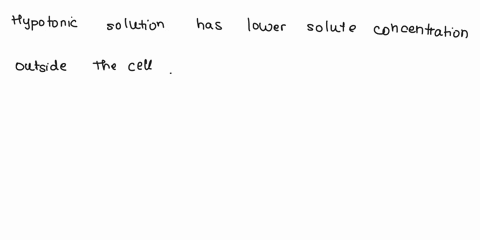 Hypotonic solution has lower solute concentration
outside the cell.